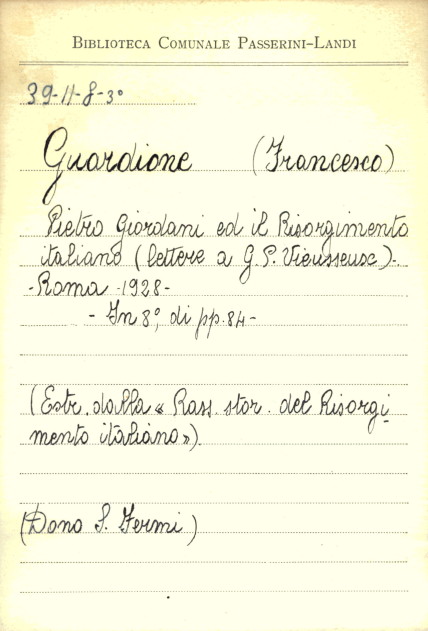 BIBLIOTECA COMUNALE PASSERINI-LANDI
39-11-8-3°
Guardione (Francesco)
Pietro Giordani ed il Risorgimento
italiano (lettere a G. P. Vieusseusc).-
-Roma -1928-
- In 8°, di pp. 84-
(Estr. dalla « Rass. stor. del Risorgi
mento italiano»).
(Dono S. Fermi)